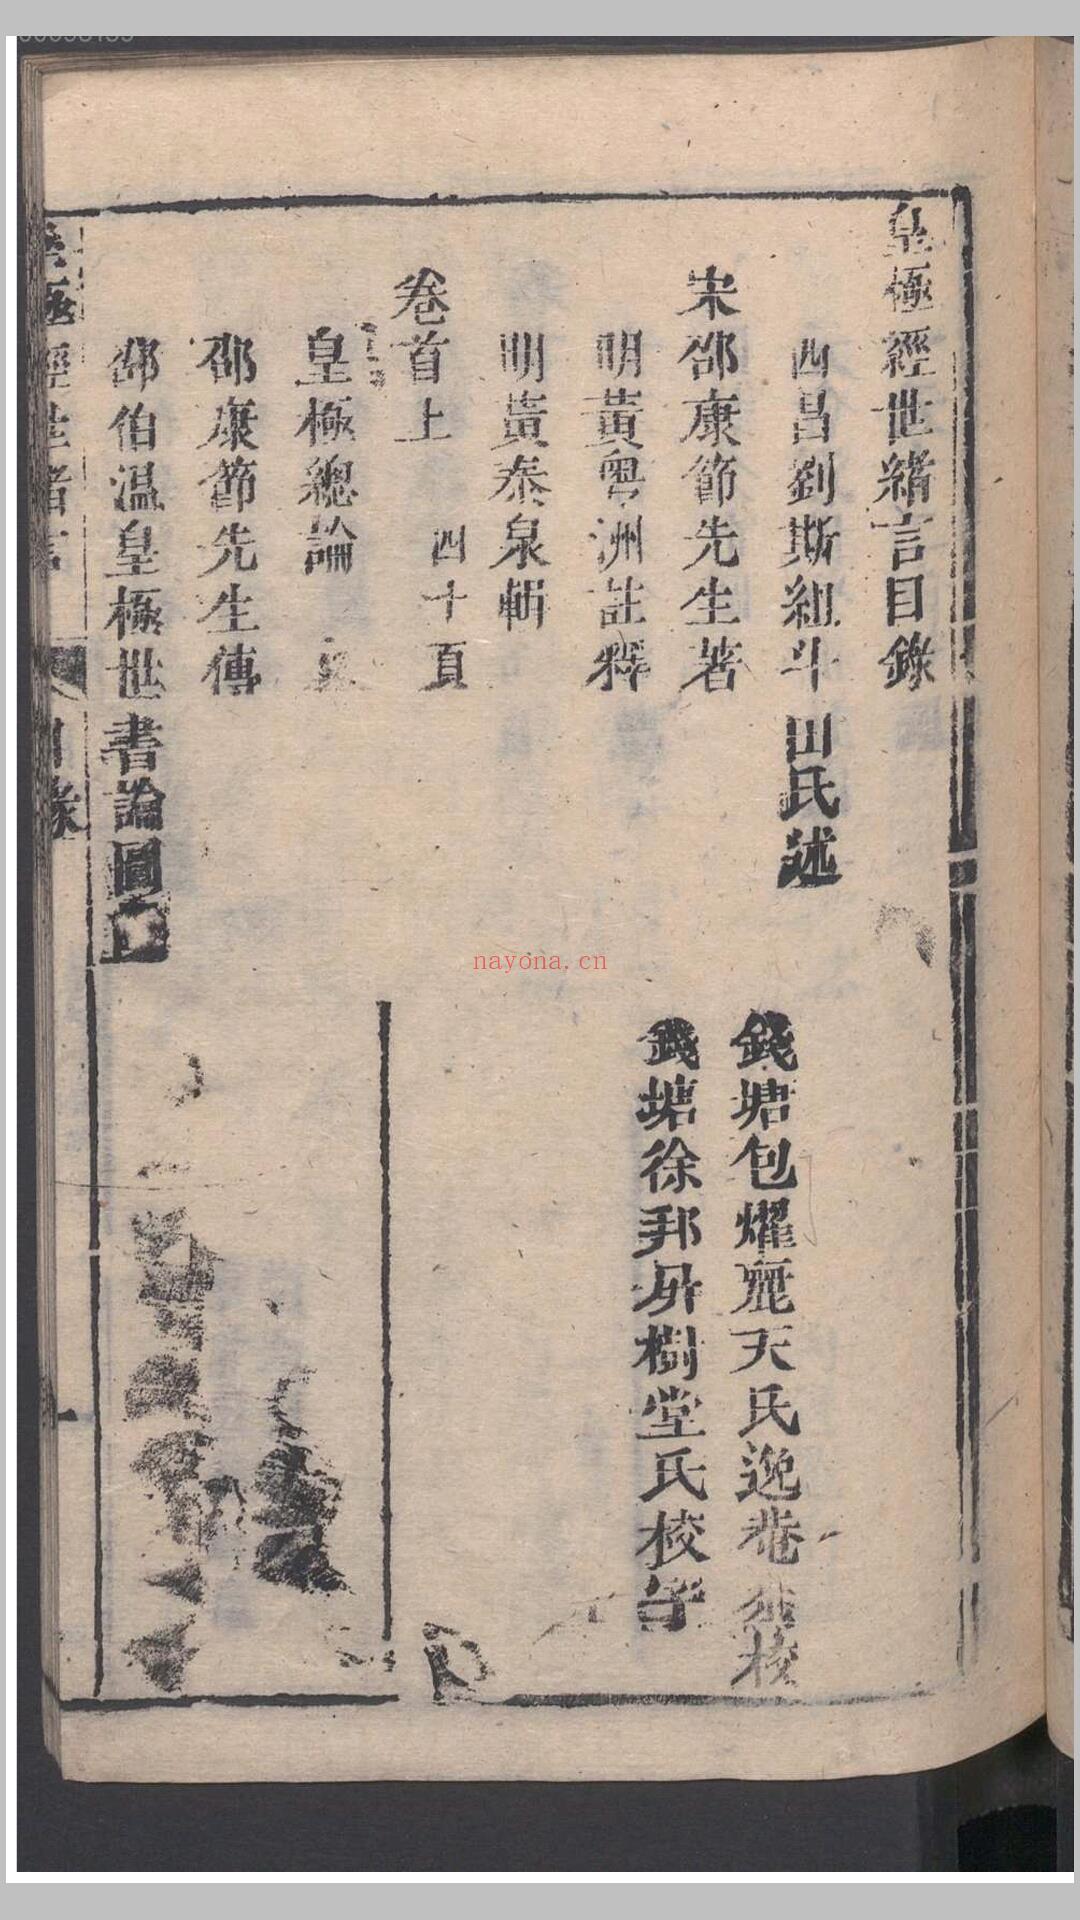 皇極經世緒言目錄
四昌劉斯組斗田氏述
宋邵康節先生著
錢塘包燿麗天氏逸菴
校
明黃粤洲註釋
錢塘徐邦屏樹堂氏校
明黃泰泉輯
卷首上 四十頁
皇極總論
邵康節先生傳
邵伯温皇極世書論圖
皇極經世緒言
目錄
一
nayona.cn